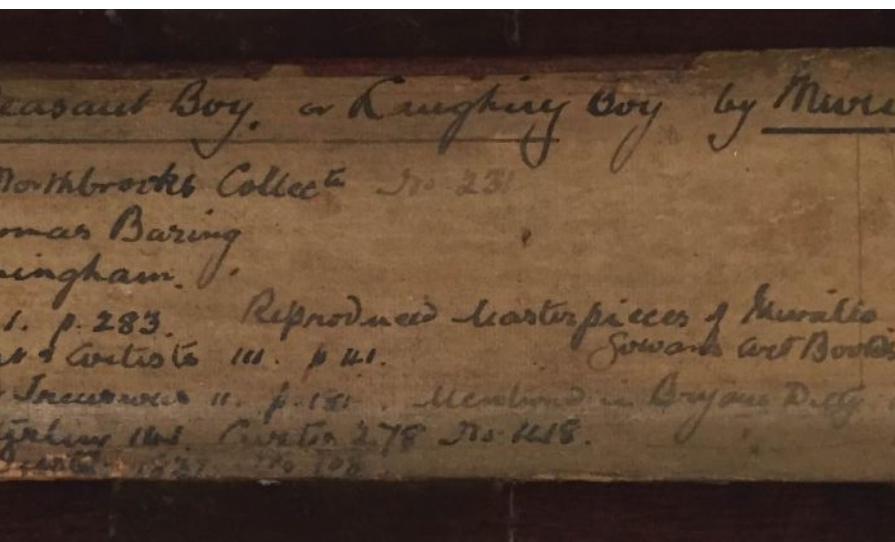 easant Boy, or Laughing Boy by Muri
Northbrooks Collectn No 231
omas Baring
ningham.
1. p. 283. Reproduced Masterpieces of Murillo
Artists III. p 41. Gowans Art Books
II. p. 181. Mentioned in Bryans Dicty
Curtis 278 No 418.